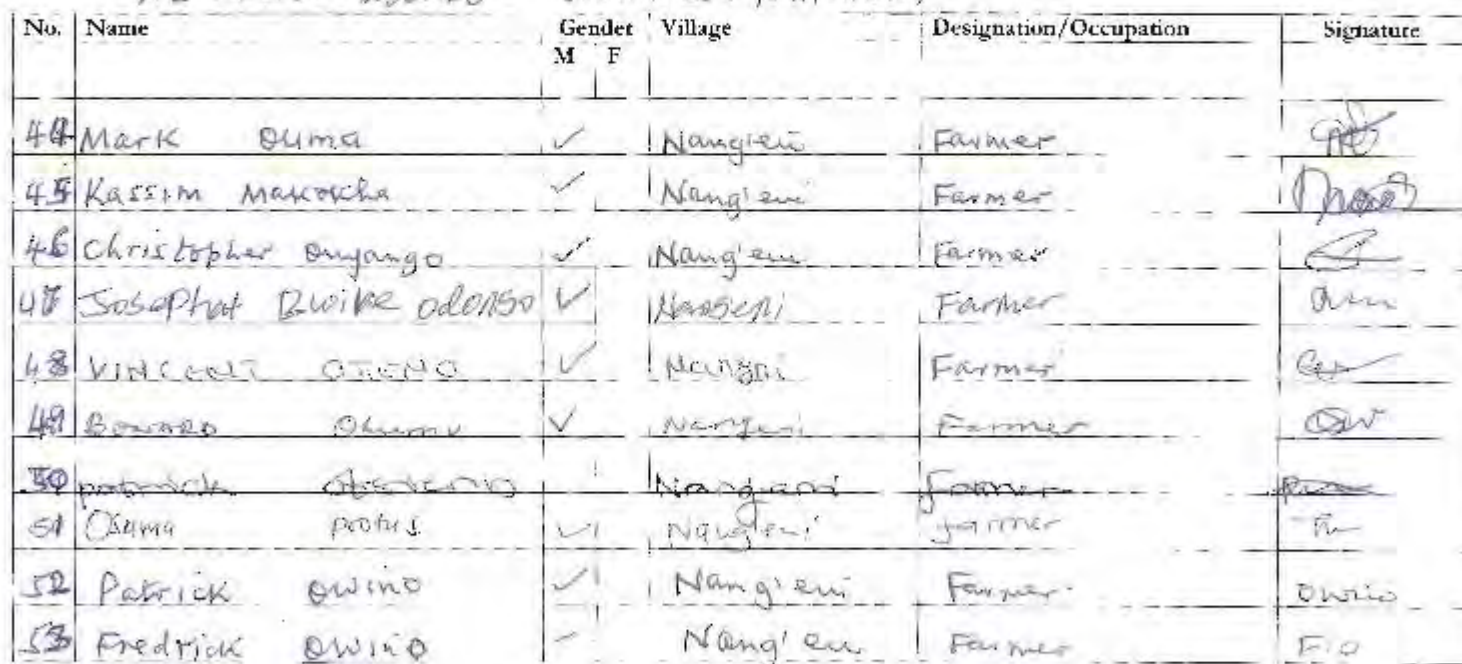 No. Name Gender Village Designation/Occupation Signature
M F
44 Mark Ouma ✓ Nang'eni Farmer
45 Kassim Makokha ✓ Nang'eni Farmer
46 Christopher Onyango ✓ Nang'eni Farmer
47 Josephat Bwire odongo ✓ Farmer
48 VINCENT OTIENO ✓ Farmer
49 ✓ Farmer
50 patrick Farmer
51 Ouma protus ✓ Nang'eni farmer
52 Patrick Owino ✓ Nang'eni Farmer Owino
53 Fredrick Owino ✓ Nang'eni Farmer F.O